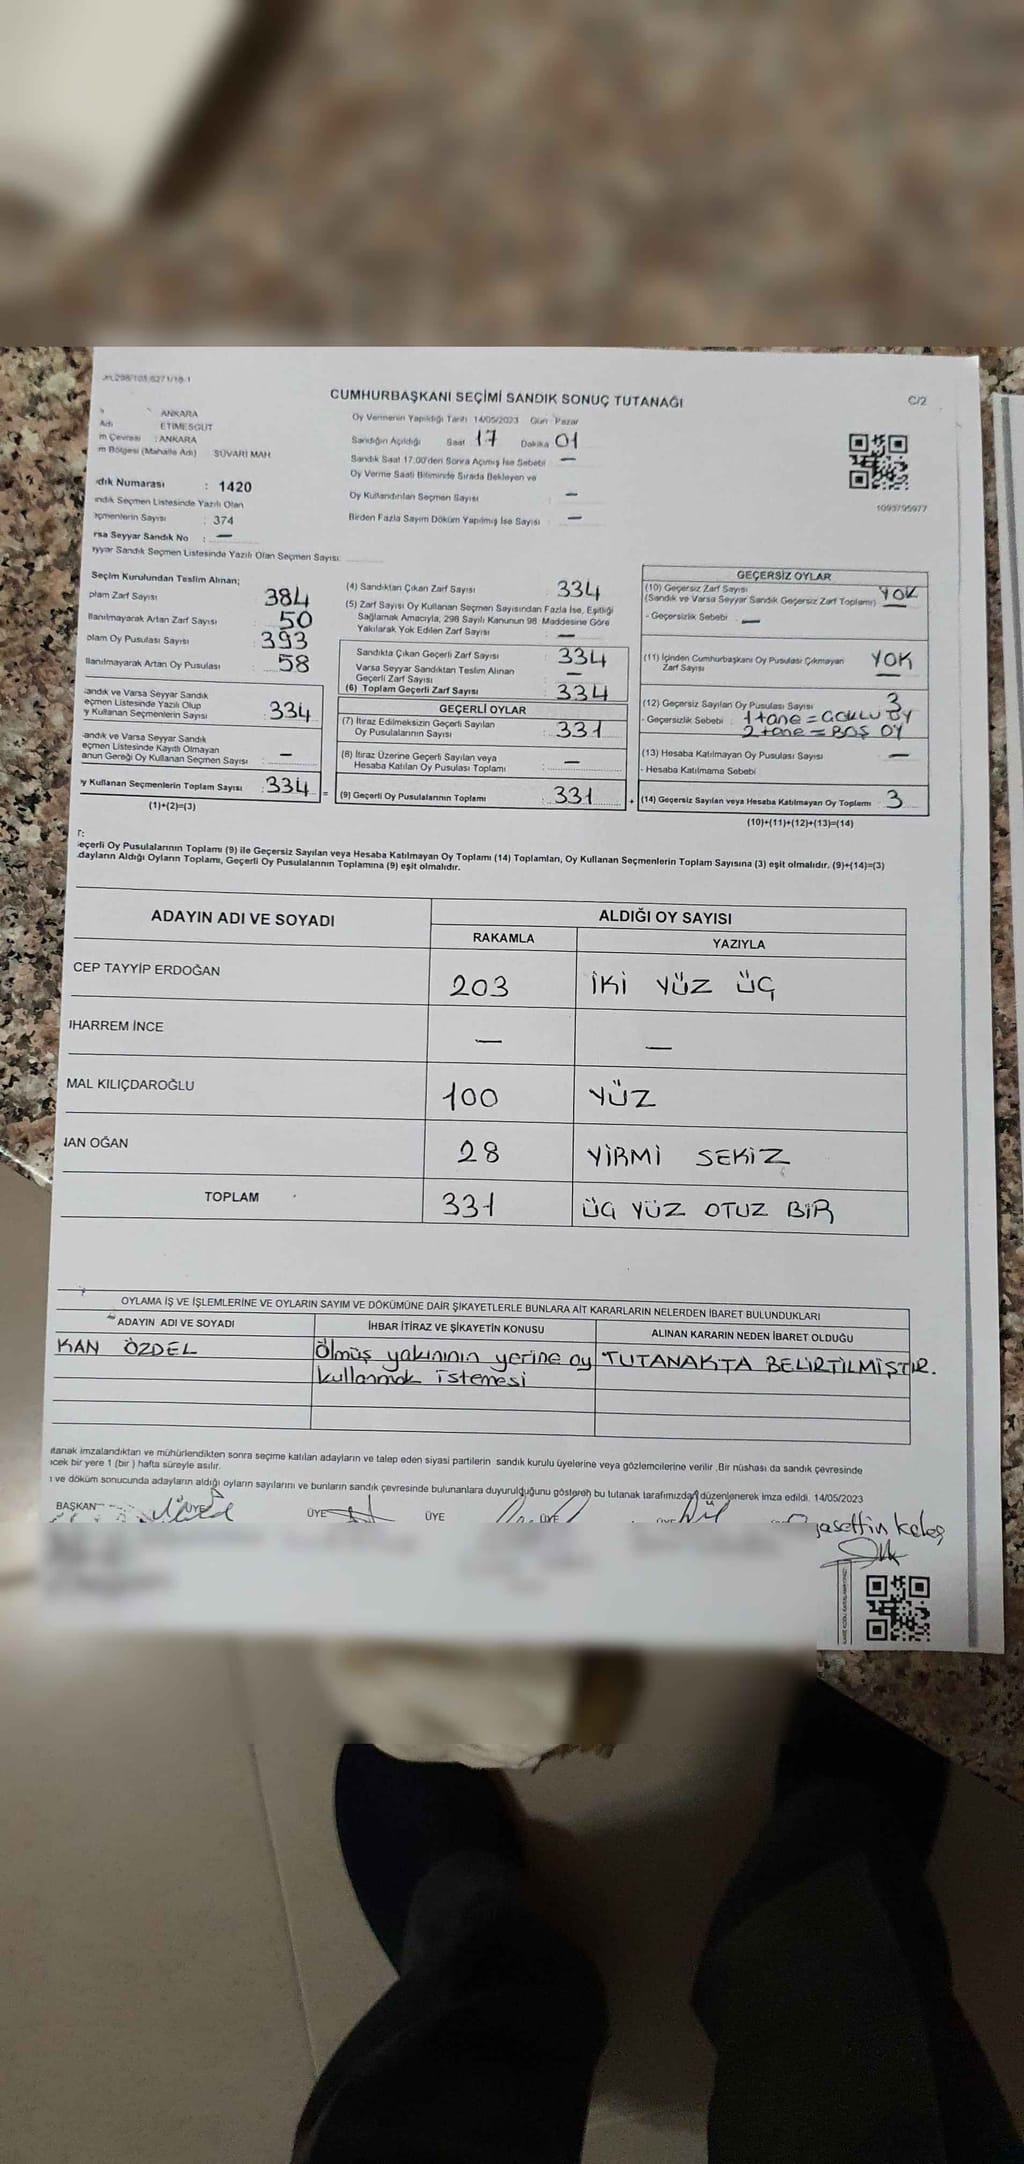 CUMHURBAŞKANI SEÇİMİ SANDIK SONUÇ TUTANAĞI
C/2
ANKARA
Adı ETİMESGUT
m Çevresi : ANKARA
m Bölgesi (Mahalle Adı) SÜVARİ MAH
dık Numarası : 1420
ındık Seçmen Listesinde Yazılı Olan
eçmenlerin Sayısı : 374
rsa Seyyar Sandık No : —
yyar Sandık Seçmen Listesinde Yazılı Olan Seçmen Sayısı:
Oy Vermenin Yapıldığı Tarih 14/05/2023 Gün Pazar
Sandığın Açıldığı Saat 17 Dakika 01
Sandık Saat 17:00'den Sonra Açımış İse Sebebi —
Oy Verme Saati Bitiminde Sırada Bekleyen ve
Oy Kullandırılan Seçmen Sayısı —
Birden Fazla Sayım Döküm Yapılmış İse Sayısı —
1093795977
Seçim Kurulundan Teslim Alınan;
plam Zarf Sayısı 384
llanılmayarak Artan Zarf Sayısı 50
plam Oy Pusulası Sayısı 393
llanılmayarak Artan Oy Pusulası 58
andık ve Varsa Seyyar Sandık
eçmen Listesinde Yazılı Olup
y Kullanan Seçmenlerin Sayısı : 334
andık ve Varsa Seyyar Sandık
eçmen Listesinde Kayıtlı Olmayan
anun Gereği Oy Kullanan Seçmen Sayısı —
y Kullanan Seçmenlerin Toplam Sayısı : 334 =
(1)+(2)=(3)
(4) Sandıktan Çıkan Zarf Sayısı 334
(5) Zarf Sayısı Oy Kullanan Seçmen Sayısından Fazla İse, Eşitliği
Sağlamak Amacıyla, 298 Sayılı Kanunun 98. Maddesine Göre
Yakılarak Yok Edilen Zarf Sayısı : —
Sandıkta Çıkan Geçerli Zarf Sayısı : 334
Varsa Seyyar Sandıktan Teslim Alınan
Geçerli Zarf Sayısı —
(6) Toplam Geçerli Zarf Sayısı : 334
GEÇERLİ OYLAR
(7) İtiraz Edilmeksizin Geçerli Sayılan
Oy Pusulalarının Sayısı : 331
(8) İtiraz Üzerine Geçerli Sayılan veya
Hesaba Katılan Oy Pusulası Toplamı : —
(9) Geçerli Oy Pusulalarının Toplamı : 331 +
GEÇERSİZ OYLAR
(10) Geçersiz Zarf Sayısı
(Sandık ve Varsa Seyyar Sandık Geçersiz Zarf Toplamı) YOK
- Geçersizlik Sebebi : —
(11) İçinden Cumhurbaşkanı Oy Pusulası Çıkmayan
Zarf Sayısı YOK
(12) Geçersiz Sayılan Oy Pusulası Sayısı 3
- Geçersizlik Sebebi : 1 tane = ÇOKLU OY
2 tane = BOŞ OY
(13) Hesaba Katılmayan Oy Pusulası Sayısı —
- Hesaba Katılmama Sebebi
(14) Geçersiz Sayılan veya Hesaba Katılmayan Oy Toplamı 3
(10)+(11)+(12)+(13)=(14)
T:
eçerli Oy Pusulalarının Toplamı (9) ile Geçersiz Sayılan veya Hesaba Katılmayan Oy Toplamı (14) Toplamları, Oy Kullanan Seçmenlerin Toplam Sayısına (3) eşit olmalıdır. (9)+(14)=(3)
dayların Aldığı Oyların Toplamı, Geçerli Oy Pusulalarının Toplamına (9) eşit olmalıdır.
ADAYIN ADI VE SOYADI ALDIĞI OY SAYISI
RAKAMLA YAZIYLA
CEP TAYYİP ERDOĞAN 203 İKİ YÜZ ÜÇ
IHARREM İNCE — —
MAL KILIÇDAROĞLU 100 YÜZ
IAN OĞAN 28 YİRMİ SEKİZ
TOPLAM 331 ÜÇ YÜZ OTUZ BİR
OYLAMA İŞ VE İŞLEMLERİNE VE OYLARIN SAYIM VE DÖKÜMÜNE DAİR ŞİKAYETLERLE BUNLARA AİT KARARLARIN NELERDEN İBARET BULUNDUKLARI
ADAYIN ADI VE SOYADI İHBAR İTİRAZ VE ŞİKAYETİN KONUSU ALINAN KARARIN NEDEN İBARET OLDUĞU
KAN ÖZDEL Ölmüş yakınının yerine oy TUTANAKTA BELİRTİLMİŞTİR.
kullanmak istemesi
utanak imzalandıktan ve mühürlendikten sonra seçime katılan adayların ve talep eden siyasi partilerin sandık kurulu üyelerine veya gözlemcilerine verilir .Bir nüshası da sandık çevresinde
ıcek bir yere 1 (bir ) hafta süreyle asılır.
ı ve döküm sonucunda adayların aldığı oyların sayılarını ve bunların sandık çevresinde bulunanlara duyurulduğunu gösteren bu tutanak tarafımızdan düzenlenerek imza edildi. 14/05/2023
BAŞKAN ÜYE ÜYE ÜYE ÜYE
yasettin Keleş